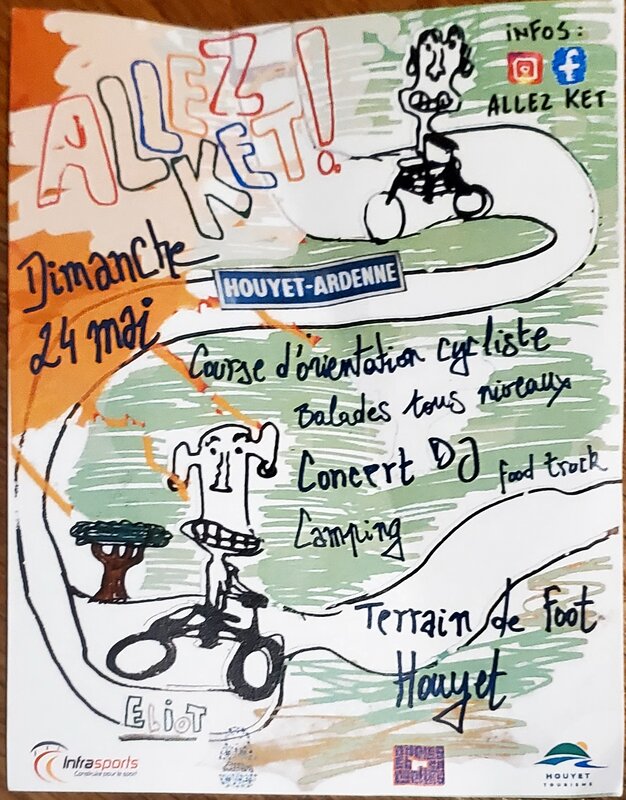 ALLEZ
KET!
INFOS :
ALLEZ KET
Dimanche
24 mai
HOUYET-ARDENNE
Course d'orientation cycliste
Balades tous niveaux
Concert DJ food truck
Camping
Terrain de Foot
Houyet
ELIOT
Infrasports
Construire pour le sport
HOUYET
TOURISME